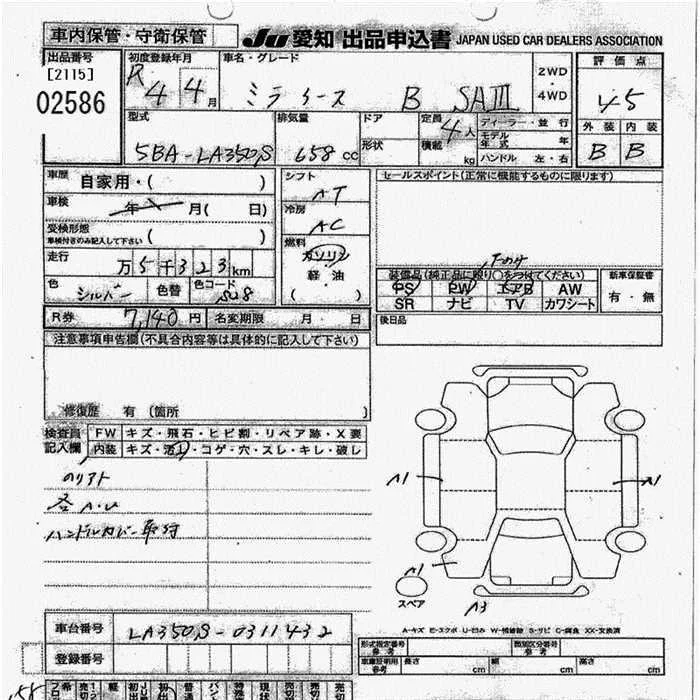 車内保管・守衛保管
JU 愛知 出品申込書 JAPAN USED CAR DEALERS ASSOCIATION
出品番号
[2115]
02586
初度登録年月
R 4 4月
車名・グレード
ミライース B SAⅢ
2WD
4WD
評価点
4.5
外装 内装
B B
型式
5BA-LA350S
排気量
658 cc
ドア
形状
定員 4人
積載 kg
ディーラー・並行
モデル年式 年
ハンドル 左・右
車歴
自家用・( )
車検
年 月( 日)
受検形態
車検付きのみ記入して下さい ( )
走行
万5千323km
色 シルバー 色替 色コード S28
シフト
AT
冷房
AC
燃料
ガソリン
軽油
( )
セールスポイント(正常に機能するものに限ります)
装備品(純正品に限り○をつけてください)
PS PW エアB AW
SR ナビ TV カワシート
新車保証書
有・無
R券 7,140円 名変期限 月・日
後日品
注意事項申告欄(不具合内容等は具体的に記入して下さい)
修復歴 有 〔箇所 〕
検査員記入欄
FW キズ・飛石・ヒビ割・リペア跡・X要
内装 キズ・汚れ・コゲ・穴・スレ・キレ・破レ
各A・U
ハンドルカバー取付
A1
A1
A1
A3
スペア
A-キズ E-エクボ U-凹み W-補修跡 S-サビ C-腐食 XX-交換済
車台番号 LA350S-0311432
登録番号
形式指定番号 参考
類別区分番号 参考
車庫証明用 参考
長さ cm 幅 cm 高さ cm